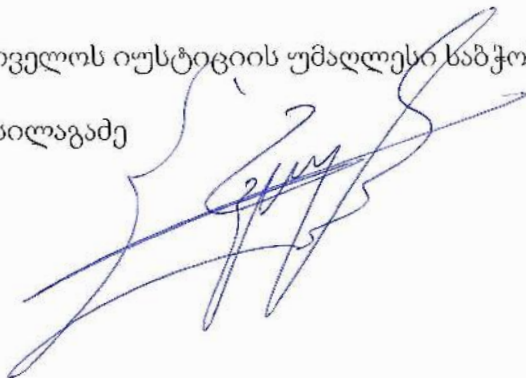 ველოს იუსტიციის უმაღლესი საბჭო
სილაგაძე